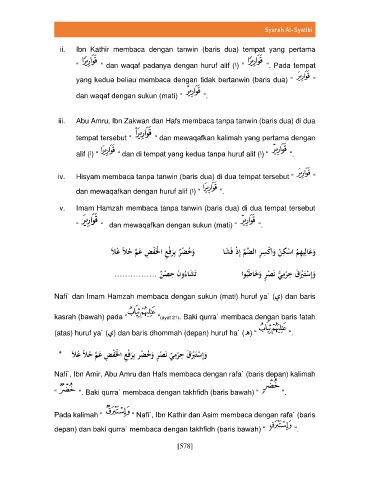 Syarah Al-Syatibi
ii. Ibn Kathir membaca dengan tanwin (baris dua) tempat yang pertama
" قَوَارِيرًا " dan waqaf padanya dengan huruf alif (ا) " قَوَارِيرًا ". Pada tempat
yang kedua beliau membaca dengan tidak bertanwin (baris dua) " قَوَارِيرَ "
dan waqaf dengan sukun (mati) " قَوَارِيرْ ".
iii. Abu Amru, Ibn Zakwan dan Hafs membaca tanpa tanwin (baris dua) di dua
tempat tersebut " قَوَارِيرَا " dan mewaqafkan kalimah yang pertama dengan
alif (ا) " قَوَارِيرَا " dan di tempat yang kedua tanpa huruf alif (ا) " قَوَارِيرْ ".
iv. Hisyam membaca tanpa tanwin (baris dua) di dua tempat tersebut " قَوَارِيرَ "
dan mewaqafkan dengan huruf alif (ا) " قَوَارِيرَا ".
v. Imam Hamzah membaca tanpa tanwin (baris dua) di dua tempat tersebut
" قَوَارِيرَ " dan mewaqafkan dengan sukun (mati) " قَوَارِيرْ ".
وَعَالِيهِمُ اسْكِنْ وَاكْسِرِ الضَّمَّ إِذْ فَشَا وَخُضْرٌ بِرَفْعِ الْخَفْضِ عَمَّ حُلاً عُلاَ
وَإِسْتَبْرَقٌ حِرْمِيُّ نَصْرٍ وَخَاطَبُوا تَشَاءُونَ حِصْنٌ ................
Nafi` dan Imam Hamzah membaca dengan sukun (mati) huruf ya` (ي) dan baris
kasrah (bawah) pada " عَالِيهِمْ ثِيَابُ "(Ayat 21). Baki qurra` membaca dengan baris fatah
(atas) huruf ya` (ي) dan baris dhommah (depan) huruf ha` (ه) " عَالِيَهُمْ ثِيَابُ ".
* وَإِسْتَبْرَقٌ حِرْمِيُّ نَصْرٍ وَخُضْرٌ بِرَفْعِ الْخَفْضِ عَمَّ حُلاً عُلاَ
Nafi`, Ibn Amir, Abu Amru dan Hafs membaca dengan rafa` (baris depan) kalimah
" خُضْرٌ ". Baki qurra` membaca dengan takhfidh (baris bawah) " خُضْرٍ ".
Pada kalimah " وَإِسْتَبْرَقٌ " Nafi`, Ibn Kathir dan Asim membaca dengan rafa` (baris
depan) dan baki qurra` membaca dengan takhfidh (baris bawah) " وَإِسْتَبْرَقٍ ".
[578]